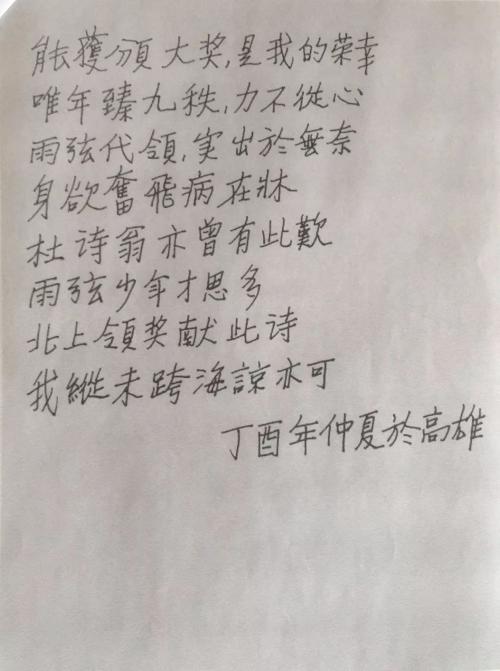 能獲頒大奖,是我的荣幸
唯年臻九秩,力不從心
雨弦代領,实出於無奈
身欲奮飛病在牀
杜诗翁亦曾有此歎
雨弦少年才思多
北上領奖献此诗
我縱未跨海諒亦可
丁酉年仲夏於高雄